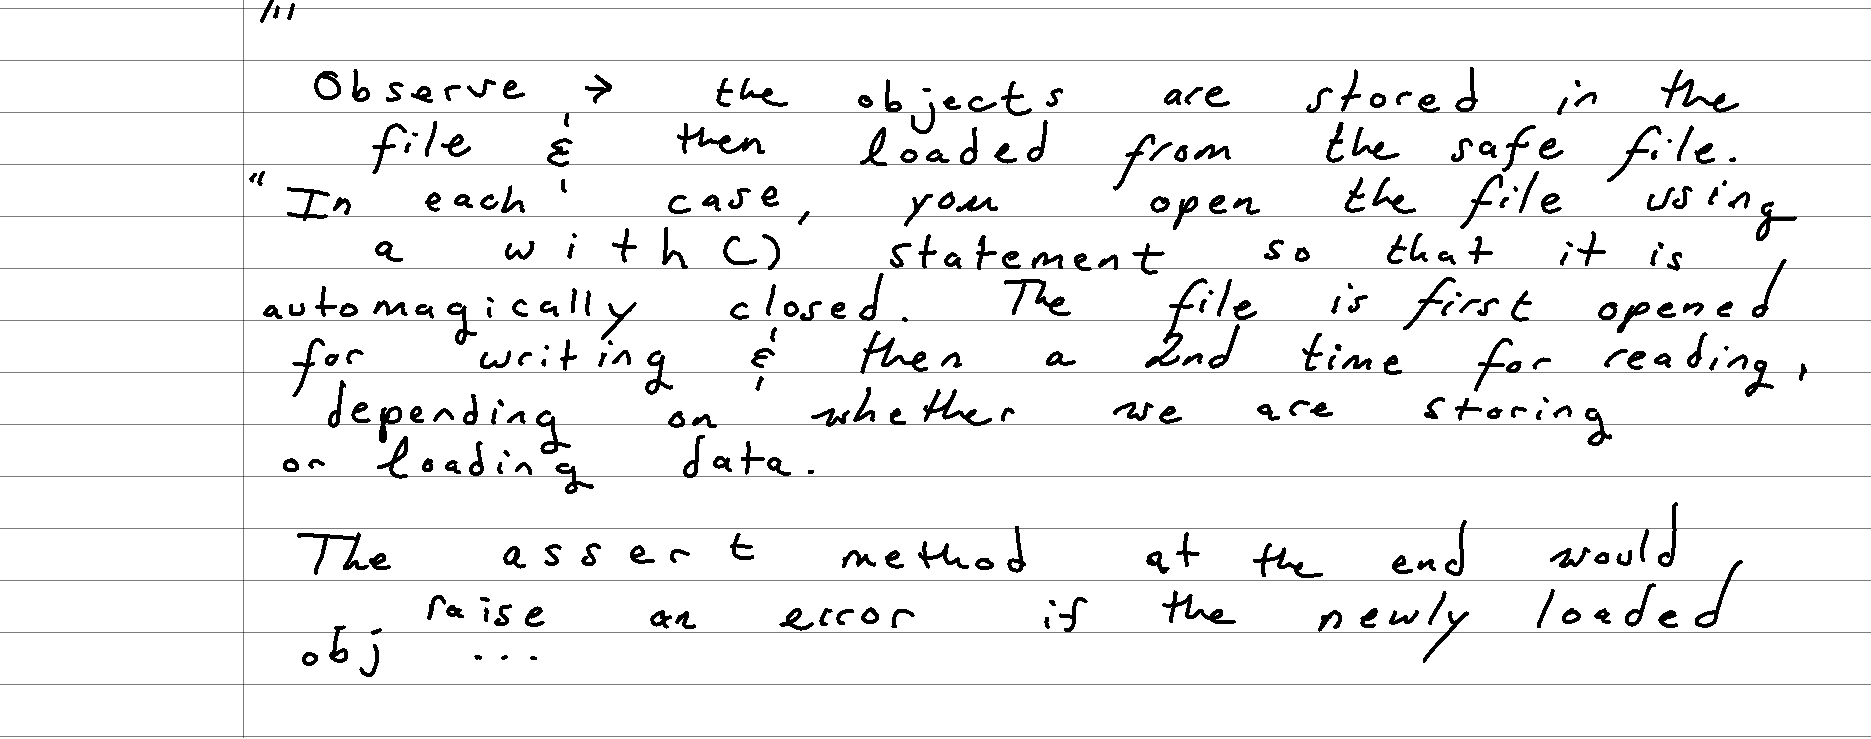 "
Observe → the objects are stored in the
file & then loaded from the safe file.
"In each case, you open the file using
a with() statement so that it is
automagically closed. The file is first opened
for writing & then a 2nd time for reading,
depending on whether we are storing
or loading data.
The assert method at the end would
raise an error if the newly loaded
obj ...